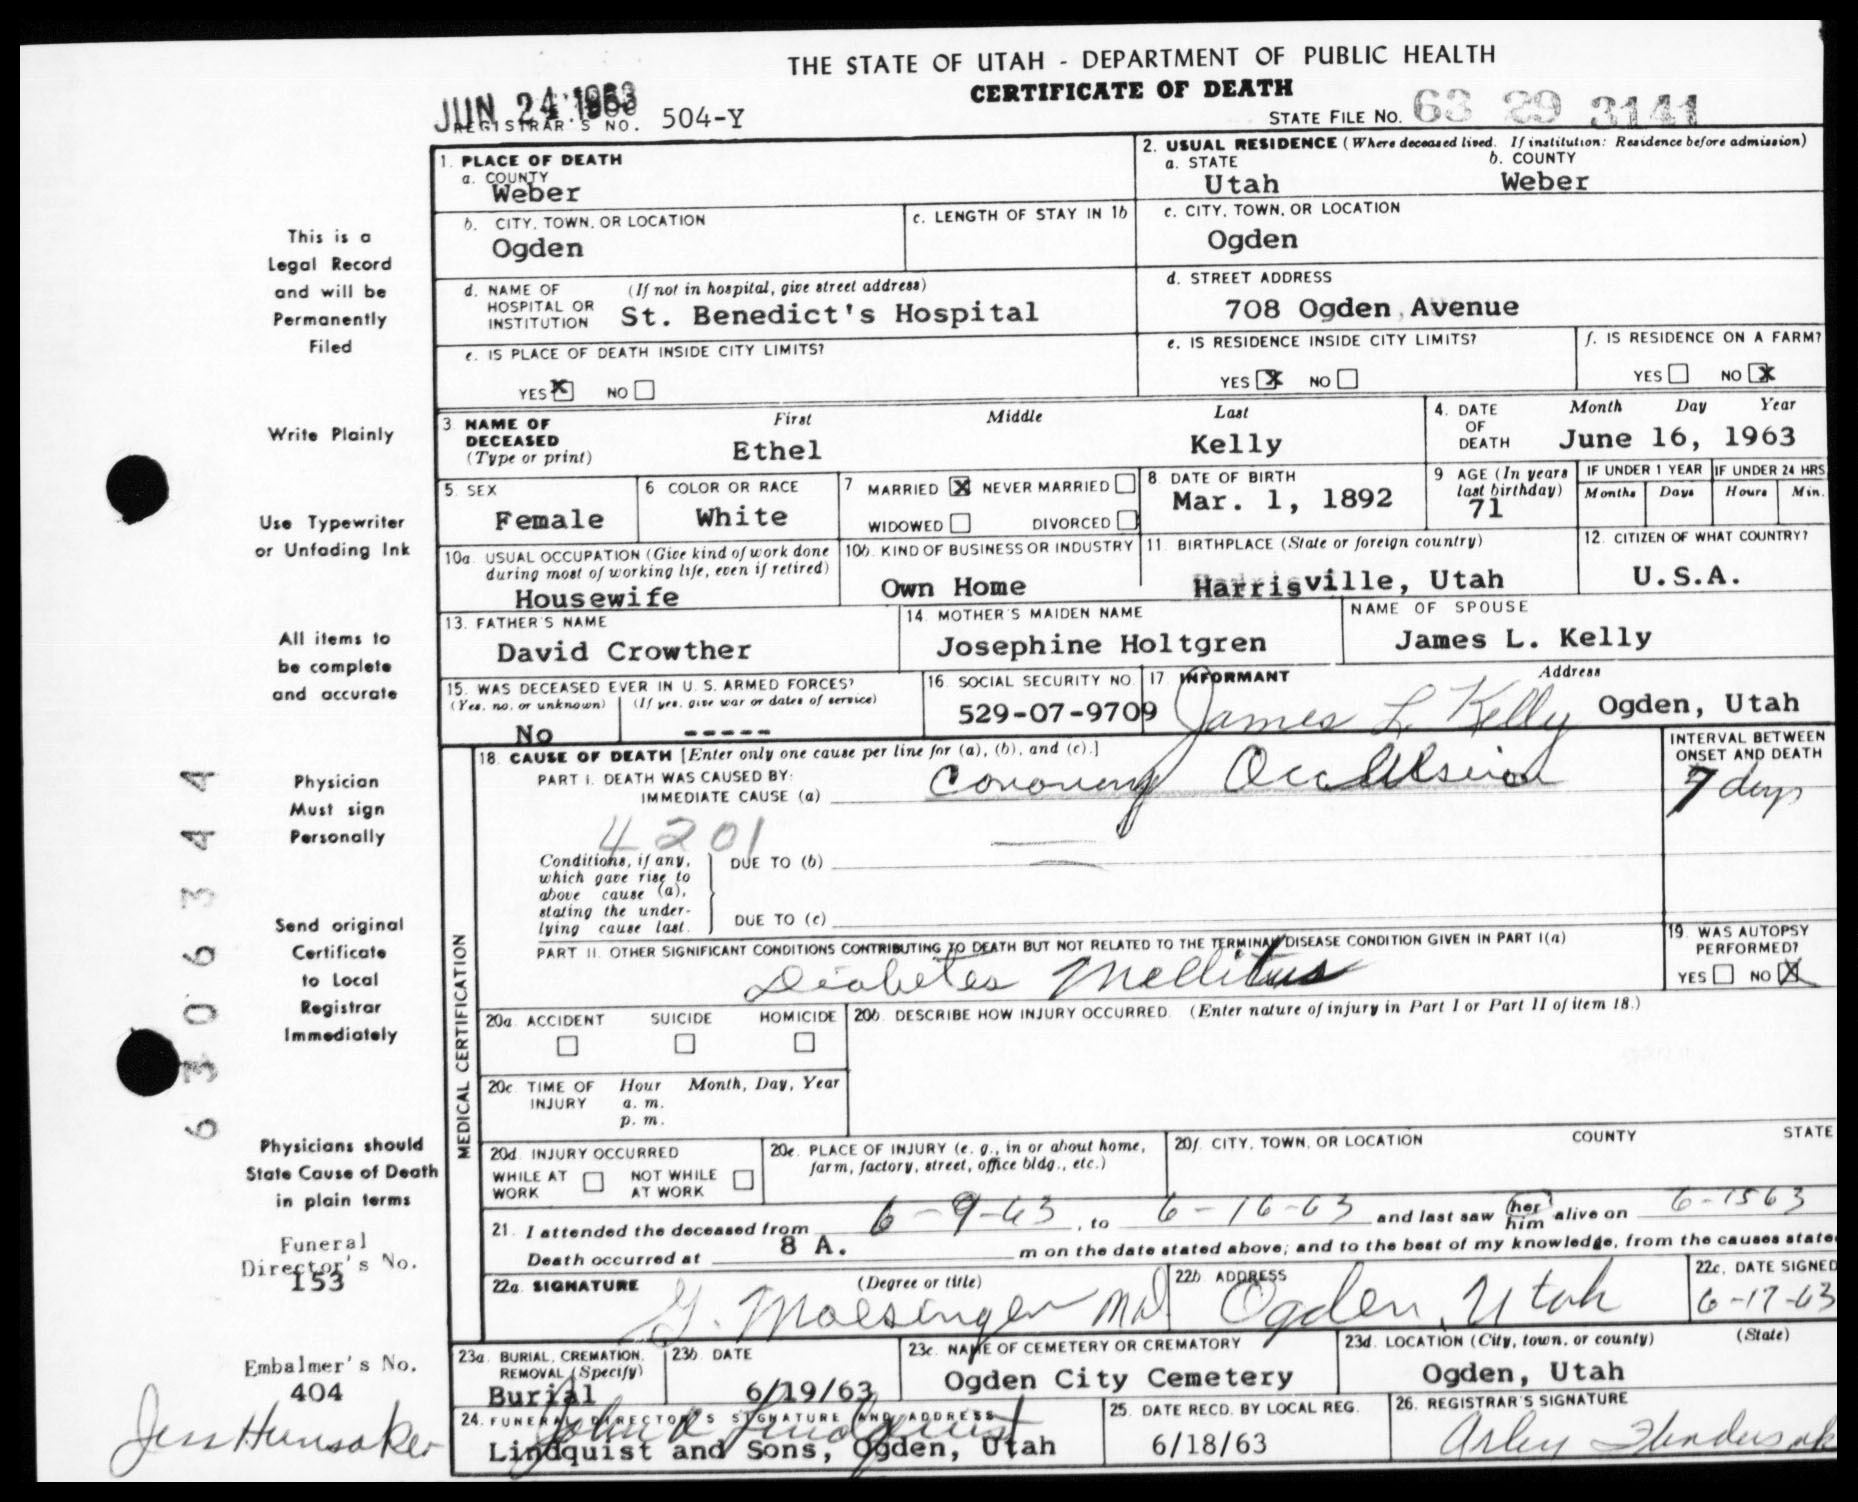 THE STATE OF UTAH - DEPARTMENT OF PUBLIC HEALTH
CERTIFICATE OF DEATH
JUN 24 1963
REGISTRAR'S NO. 504-Y
STATE FILE NO. 63 29 3141
This is a
Legal Record
and will be
Permanently
Filed
Write Plainly
Use Typewriter
or Unfading Ink
All items to
be complete
and accurate
Physician
Must sign
Personally
Send original
Certificate
to Local
Registrar
Immediately
Physicians should
State Cause of Death
in plain terms
Funeral
Director's No.
153
Embalmer's No.
404
Jess Hunsaker
6306344
1. PLACE OF DEATH
a. COUNTY
Weber
b. CITY, TOWN, OR LOCATION
Ogden
c. LENGTH OF STAY IN 1b
d. NAME OF HOSPITAL OR INSTITUTION (If not in hospital, give street address)
St. Benedict's Hospital
e. IS PLACE OF DEATH INSIDE CITY LIMITS?
YES X NO
2. USUAL RESIDENCE (Where deceased lived. If institution: Residence before admission)
a. STATE b. COUNTY
Utah Weber
c. CITY, TOWN, OR LOCATION
Ogden
d. STREET ADDRESS
708 Ogden Avenue
e. IS RESIDENCE INSIDE CITY LIMITS?
YES X NO
f. IS RESIDENCE ON A FARM?
YES NO X
3. NAME OF DECEASED (Type or print)
First Middle Last
Ethel Kelly
4. DATE OF DEATH Month Day Year
June 16, 1963
5. SEX
Female
6 COLOR OR RACE
White
7 MARRIED X NEVER MARRIED
WIDOWED DIVORCED
8 DATE OF BIRTH
Mar. 1, 1892
9 AGE (In years last birthday)
71
IF UNDER 1 YEAR IF UNDER 24 HRS
Months Days Hours Min.
10a. USUAL OCCUPATION (Give kind of work done
during most of working life, even if retired)
Housewife
10b. KIND OF BUSINESS OR INDUSTRY
Own Home
11. BIRTHPLACE (State or foreign country)
Harrisville, Utah
12. CITIZEN OF WHAT COUNTRY?
U.S.A.
13. FATHER'S NAME
David Crowther
14. MOTHER'S MAIDEN NAME
Josephine Holtgren
NAME OF SPOUSE
James L. Kelly
15. WAS DECEASED EVER IN U. S. ARMED FORCES?
(Yes, no, or unknown) (If yes, give war or dates of service)
No -----
16. SOCIAL SECURITY NO.
529-07-9709
17. INFORMANT Address
James L Kelly Ogden, Utah
MEDICAL CERTIFICATION
18. CAUSE OF DEATH [Enter only one cause per line for (a), (b), and (c).]
INTERVAL BETWEEN
ONSET AND DEATH
PART I. DEATH WAS CAUSED BY:
IMMEDIATE CAUSE (a) Coronary Occlusion
7 days
4201
Conditions, if any,
which gave rise to
above cause (a),
stating the under-
lying cause last.
DUE TO (b)
DUE TO (c)
PART II. OTHER SIGNIFICANT CONDITIONS CONTRIBUTING TO DEATH BUT NOT RELATED TO THE TERMINAL DISEASE CONDITION GIVEN IN PART I(a)
Diabetes Mellitus
19. WAS AUTOPSY
PERFORMED?
YES NO X
20a. ACCIDENT SUICIDE HOMICIDE
20b. DESCRIBE HOW INJURY OCCURRED. (Enter nature of injury in Part I or Part II of item 18.)
20c. TIME OF INJURY Hour Month, Day, Year
a. m.
p. m.
20d. INJURY OCCURRED
WHILE AT WORK NOT WHILE AT WORK
20e. PLACE OF INJURY (e. g., in or about home,
farm, factory, street, office bldg., etc.)
20f. CITY, TOWN, OR LOCATION COUNTY STATE
21. I attended the deceased from 6-9-63, to 6-16-63 and last saw her him alive on 6-1563
Death occurred at 8 A. m on the date stated above; and to the best of my knowledge, from the causes state
22a. SIGNATURE (Degree or title)
G. Moesinger MD
22b. ADDRESS
Ogden, Utah
22c. DATE SIGNED
6-17-63
23a. BURIAL, CREMATION, REMOVAL (Specify)
Burial
23b. DATE
6/19/63
23c. NAME OF CEMETERY OR CREMATORY
Ogden City Cemetery
23d. LOCATION (City, town, or county) (State)
Ogden, Utah
24. FUNERAL DIRECTOR'S SIGNATURE AND ADDRESS
Lindquist and Sons, Ogden, Utah
25. DATE RECD. BY LOCAL REG.
6/18/63
26. REGISTRAR'S SIGNATURE